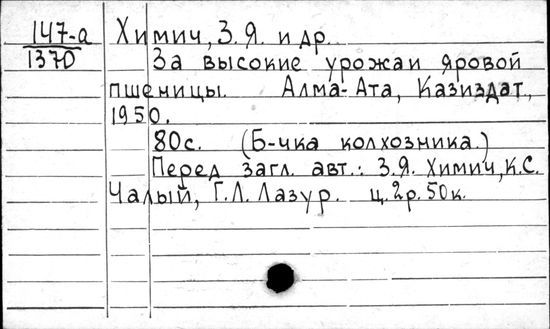 147-а
1370
Химич, З.Я. и др.
За высокие урожаи яровой
пшеницы. Алма-Ата, Казиздат,
1950.
80с. (Б-чка колхозника.)
Перед загл. авт.: З.Я. Химич, К.С.
Чалый, Г.Л. Лазур. ц. 2р. 50к.